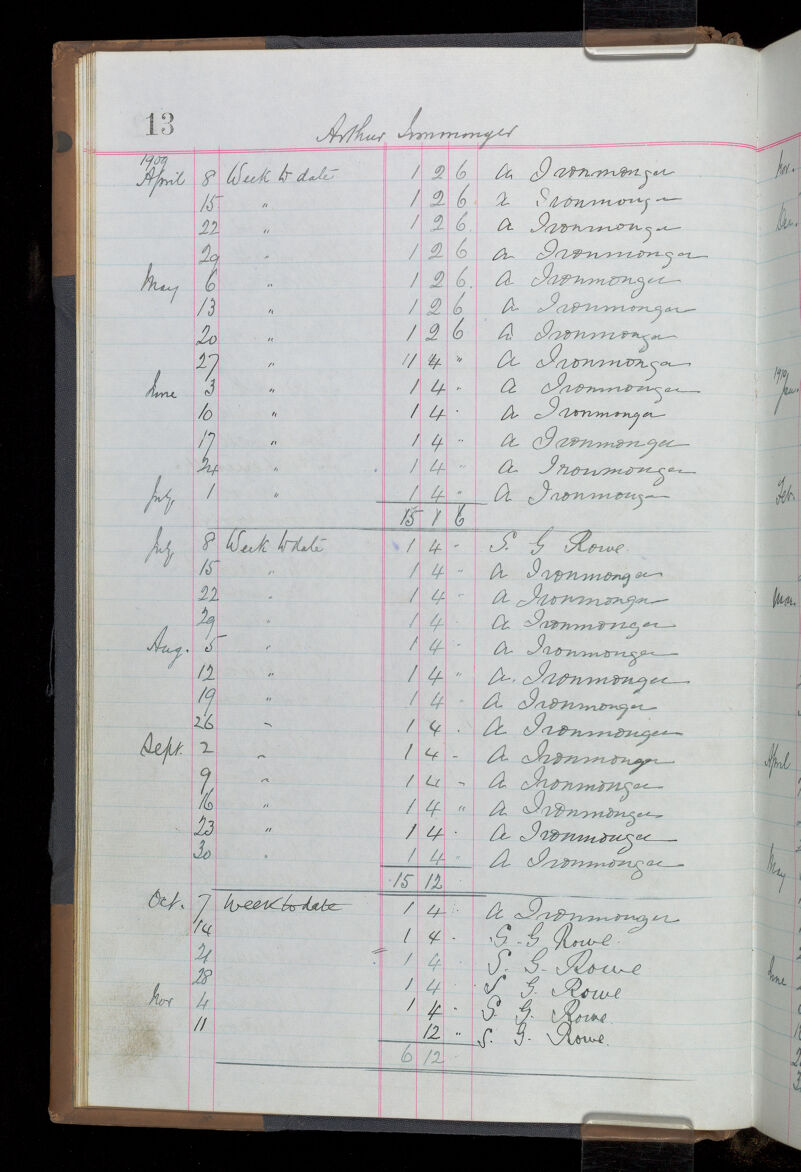 13
Arthur Ironmonger
1909
April 8 Week to date 1 2 6 A Ironmonger
15 " 1 2 6 A Ironmonger
22 " 1 2 6 A Ironmonger
29 " 1 2 6 A Ironmonger
May 6 " 1 2 6 A Ironmonger
13 " 1 2 6 A Ironmonger
20 " 1 2 6 A Ironmonger
27 " 1 4 " A Ironmonger
June 3 " 1 4 " A Ironmonger
10 " 1 4 " A Ironmonger
17 " 1 4 " A Ironmonger
24 " 1 4 " A Ironmonger
July 1 " 1 4 " A Ironmonger
15 1 6
July 8 Week to date 1 4 - S. G Rowe
15 " 1 4 " A Ironmonger
22 " 1 4 - A Ironmonger
29 " 1 4 A Ironmonger
Aug. 5 " 1 4 - A Ironmonger
12 " 1 4 " A. Ironmonger
19 " 1 4 - A Ironmonger
26 " 1 4 . A Ironmonger
Sept. 2 " 1 4 - A Ironmonger
9 " 1 4 - A Ironmonger
16 " 1 4 " A Ironmonger
23 " 1 4 . A Ironmonger
30 " 1 4 " A Ironmonger
15 12
Oct. 7 Week to date 1 4 A Ironmonger
14 1 4 - S. G Rowe.
21 1 4 S. G. Rowe
28 1 4 S G. Rowe
Nov 4 1 4 - S. G. Rowe.
11 12 " S. G. Rowe.
6 12
Nov.
Dec.
1910
Jan.
Feb.
Mar.
April
May
June